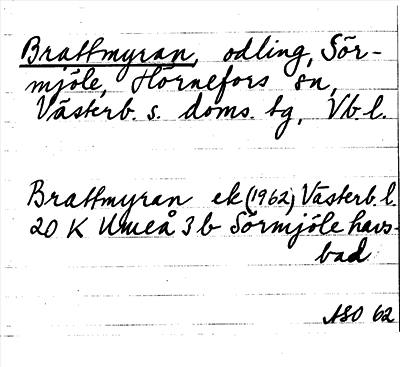 Brattmyran, odling, Sör-
mjöle, Hörnefors sn,
Västerb. s. doms. tg, Vb. l.
Brattmyran ek (1962) Västerb. l.
20 K Umeå 3 b Sörmjöle havs-
bad
ASO 62